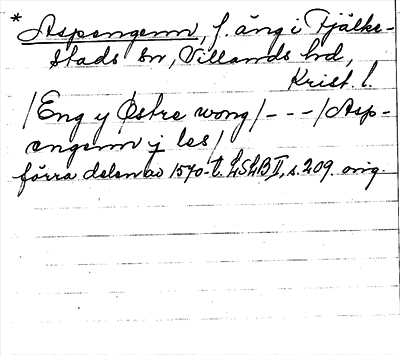 * Aspengenn, f. äng i Fjälke-
stads sn, Villands hd,
Krist. l.
/Eng y Østre wong/ - - - /Asp-
engenn j les/
förra delen av 1570-t. LSLB II, s. 209. orig.